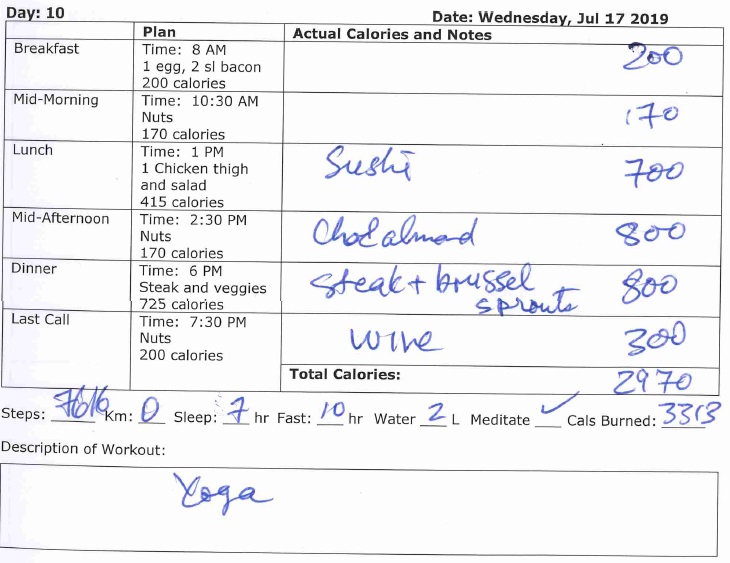 Day: 10 Date: Wednesday, Jul 17 2019
Plan Actual Calories and Notes
Breakfast Time: 8 AM 200
1 egg, 2 sl bacon
200 calories
Mid-Morning Time: 10:30 AM 170
Nuts
170 calories
Lunch Time: 1 PM Sushi 700
1 Chicken thigh
and salad
415 calories
Mid-Afternoon Time: 2:30 PM Choc almond 800
Nuts
170 calories
Dinner Time: 6 PM Steak + brussel 800
Steak and veggies sprouts
725 calories
Last Call Time: 7:30 PM wine 300
Nuts
200 calories
Total Calories: 2970
Steps: 7616 Km: 0 Sleep: 7 hr Fast: 10 hr Water 2 L Meditate ✓ Cals Burned: 3313
Description of Workout:
Yoga